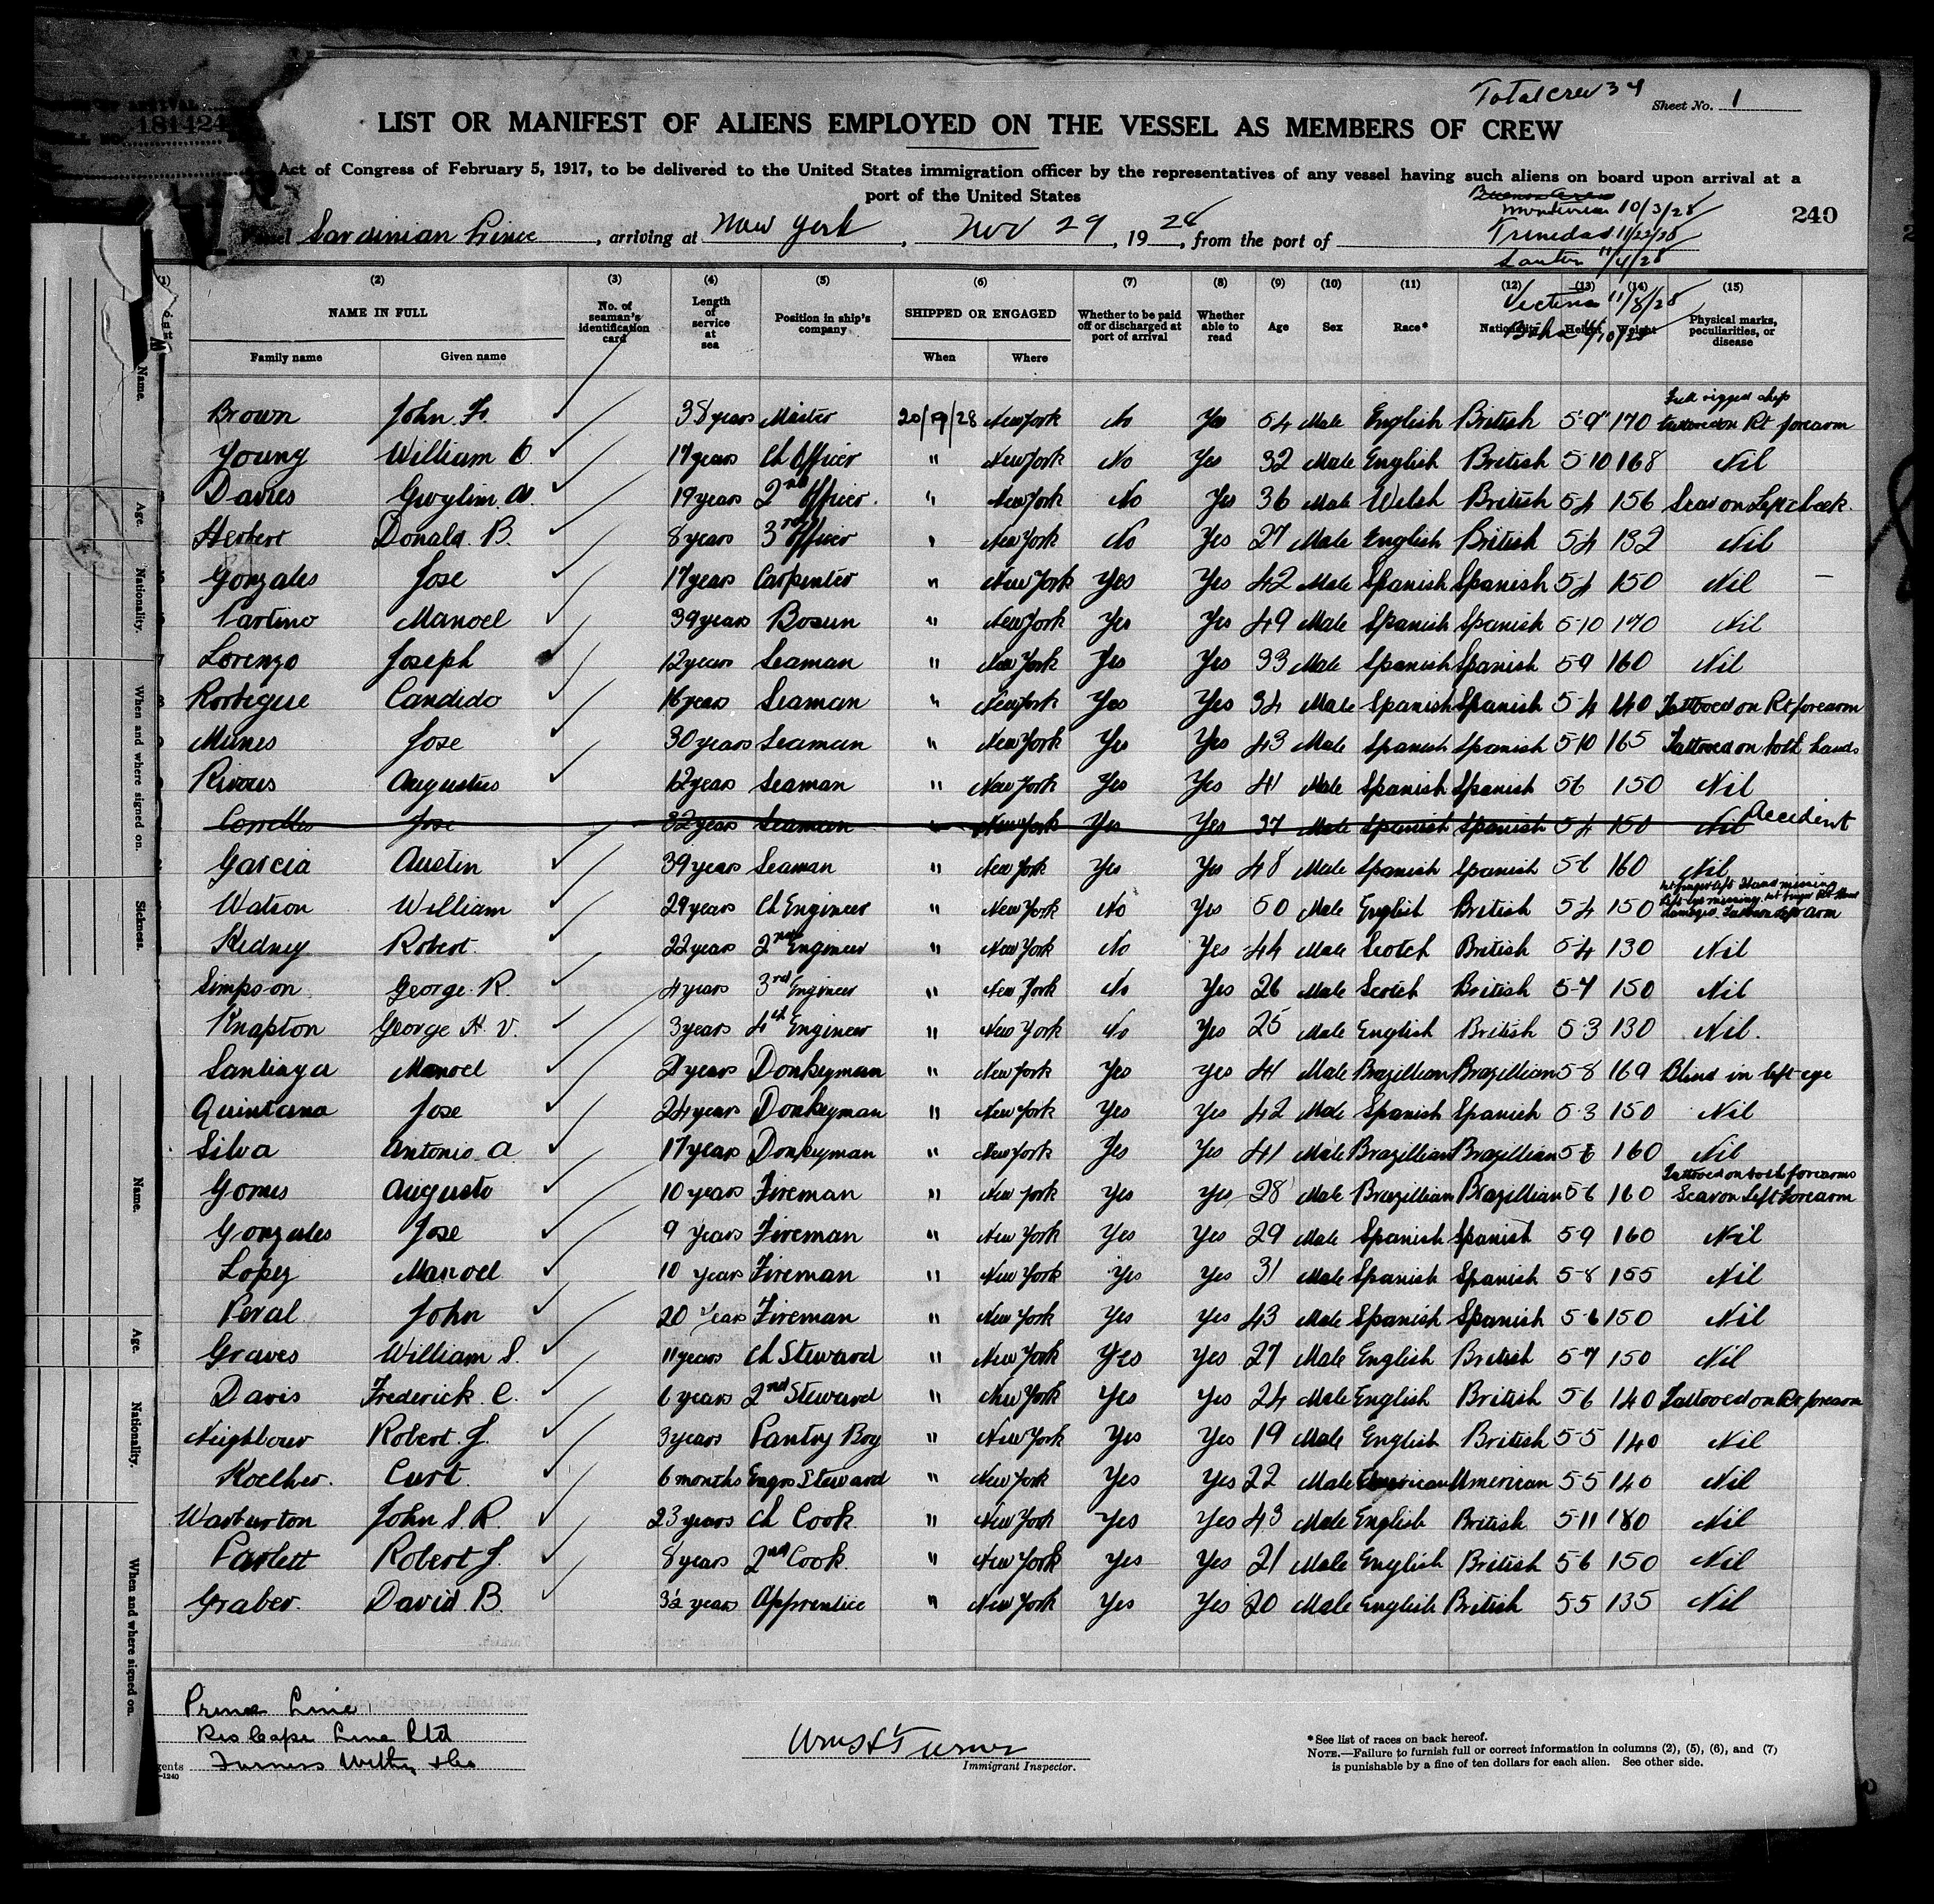 Total crew 34
Sheet No. 1
181424
LIST OR MANIFEST OF ALIENS EMPLOYED ON THE VESSEL AS MEMBERS OF CREW
Act of Congress of February 5, 1917, to be delivered to the United States immigration officer by the representatives of any vessel having such aliens on board upon arrival at a
port of the United States
Buenos Aires
10/3/28
240
Vessel Sardinian Prince, arriving at New York, Nov 29, 1928, from the port of
Trinidad 11/22/28
Santos 11/4/28
11/8/28
(2) (3) (4) (5) (6) (7) (8) (9) (10) (11) (12) (13) (14) (15)
NAME IN FULL No. of seaman's identification card Length of service at sea Position in ship's company SHIPPED OR ENGAGED Whether to be paid off or discharged at port of arrival Whether able to read Age Sex Race* Nationality Height Weight Physical marks, peculiarities, or disease
Family name Given name When Where
Full rigged ship
Brown John F. 38 years Master 20/9/28 New York No Yes 54 Male English British 5'9" 170 tattooed on Rt forearm
Young William O. 17 years Ch Officer " New York No Yes 32 Male English British 5-10 168 Nil
Davies Gwylim W. 19 years 2nd Officer. " New York No Yes 36 Male Welsh British 5-4 156 Scar on Left cheek.
Herbert Donald. B. 8 years 3rd Officer " New York No Yes 27 Male English British 5-4 132 Nil
Gonzales Jose 17 years Carpenter " New York Yes Yes 42 Male Spanish Spanish 5-4 150 Nil —
Partino Manoel 39 years Bosun " New York Yes Yes 49 Male Spanish Spanish 5-10 170 Nil
Lorenzo Joseph 12 years Seaman " New York Yes Yes 33 Male Spanish Spanish 5-9 160 Nil
Rodtegue Candido 16 years Seaman " New York Yes Yes 34 Male Spanish Spanish 5-4 140 Tattooed on Rt forearm
Munes Jose 30 years Seaman " New York Yes Yes 43 Male Spanish Spanish 5-10 165 Tattooed on both hands
Rivares Augustus 12 years Seaman " New York Yes Yes 41 Male Spanish Spanish 56 150 Nil
Jose 32 years Seaman " New York Yes Yes 37 Male Spanish Spanish 5-4 150 Nil Accident
Garcia Austin 39 years Seaman " New York Yes Yes 48 Male Spanish Spanish 5-6 160 Nil
Watson William 29 years Ch Engineer " New York No Yes 50 Male English British 5-4 150 1st finger left Hand missing
Kidney Robert. 22 years 2nd Engineer " New York No Yes 44 Male Scotch British 5-4 130 Nil
Simpson George. R. 4 years 3rd Engineer " New York No Yes 26 Male Scotch British 5-7 150 Nil
Knapton George H. V. 3 years 4th Engineer " New York No Yes 25 Male English British 5-3 130 Nil.
Santiaga Manoel 21 years Donkeyman " New York Yes Yes 41 Male Brazillian Brazillian 5-8 169 Blind in left eye
Quintana Jose 24 years Donkeyman " New York Yes Yes 42 Male Spanish Spanish 5-3 150 Nil
Silva Antonio. A. 17 years Donkeyman " New York Yes Yes 41 Male Brazillian Brazillian 5-6 160 Nil
Tattooed on both forearms
Gomes Augusto 10 years Fireman " New York Yes Yes 28 Male Brazillian Brazillian 5-6 160 Scar on Left Forearm
Gonzales Jose 9 years Fireman " New York Yes Yes 29 Male Spanish Spanish 5-9 160 Nil
Lopez Manoel 10 years Fireman " New York Yes Yes 31 Male Spanish Spanish 5-8 155 Nil
Peral John 20 years Fireman " New York Yes Yes 43 Male Spanish Spanish 5-6 150 Nil
Graves William S. 11 years Ch Steward " New York Yes Yes 27 Male English British 5-7 150 Nil
Davis Frederick. C. 6 years 2nd Steward " New York Yes Yes 24 Male English British 5-6 140 Tattooed on Rt forearm
Neighbour Robert. J. 3 years Pantry Boy " New York Yes Yes 19 Male English British 5-5 140 Nil
Koelher. Curt. 6 months Engrs Steward " New York Yes Yes 22 Male American American 5-5 140 Nil
Warburton John S. R. 23 years Ch Cook " New York Yes Yes 43 Male English British 5-11 180 Nil
Parlett Robert J. 8 years 2nd Cook. " New York Yes Yes 21 Male English British 5-6 150 Nil
Graber. David. B. 3½ years Apprentice " New York Yes Yes 20 Male English British 5-5 135 Nil
Name.
Age.
Nationality.
When and where signed on.
Sickness.
Name.
Age.
Nationality.
When and where signed on.
Prince Line
Rio Cape Line Ltd
Furness Withy & Co
Turner
Immigrant Inspector.
*See list of races on back hereof.
NOTE.—Failure to furnish full or correct information in columns (2), (5), (6), and (7)
is punishable by a fine of ten dollars for each alien. See other side.